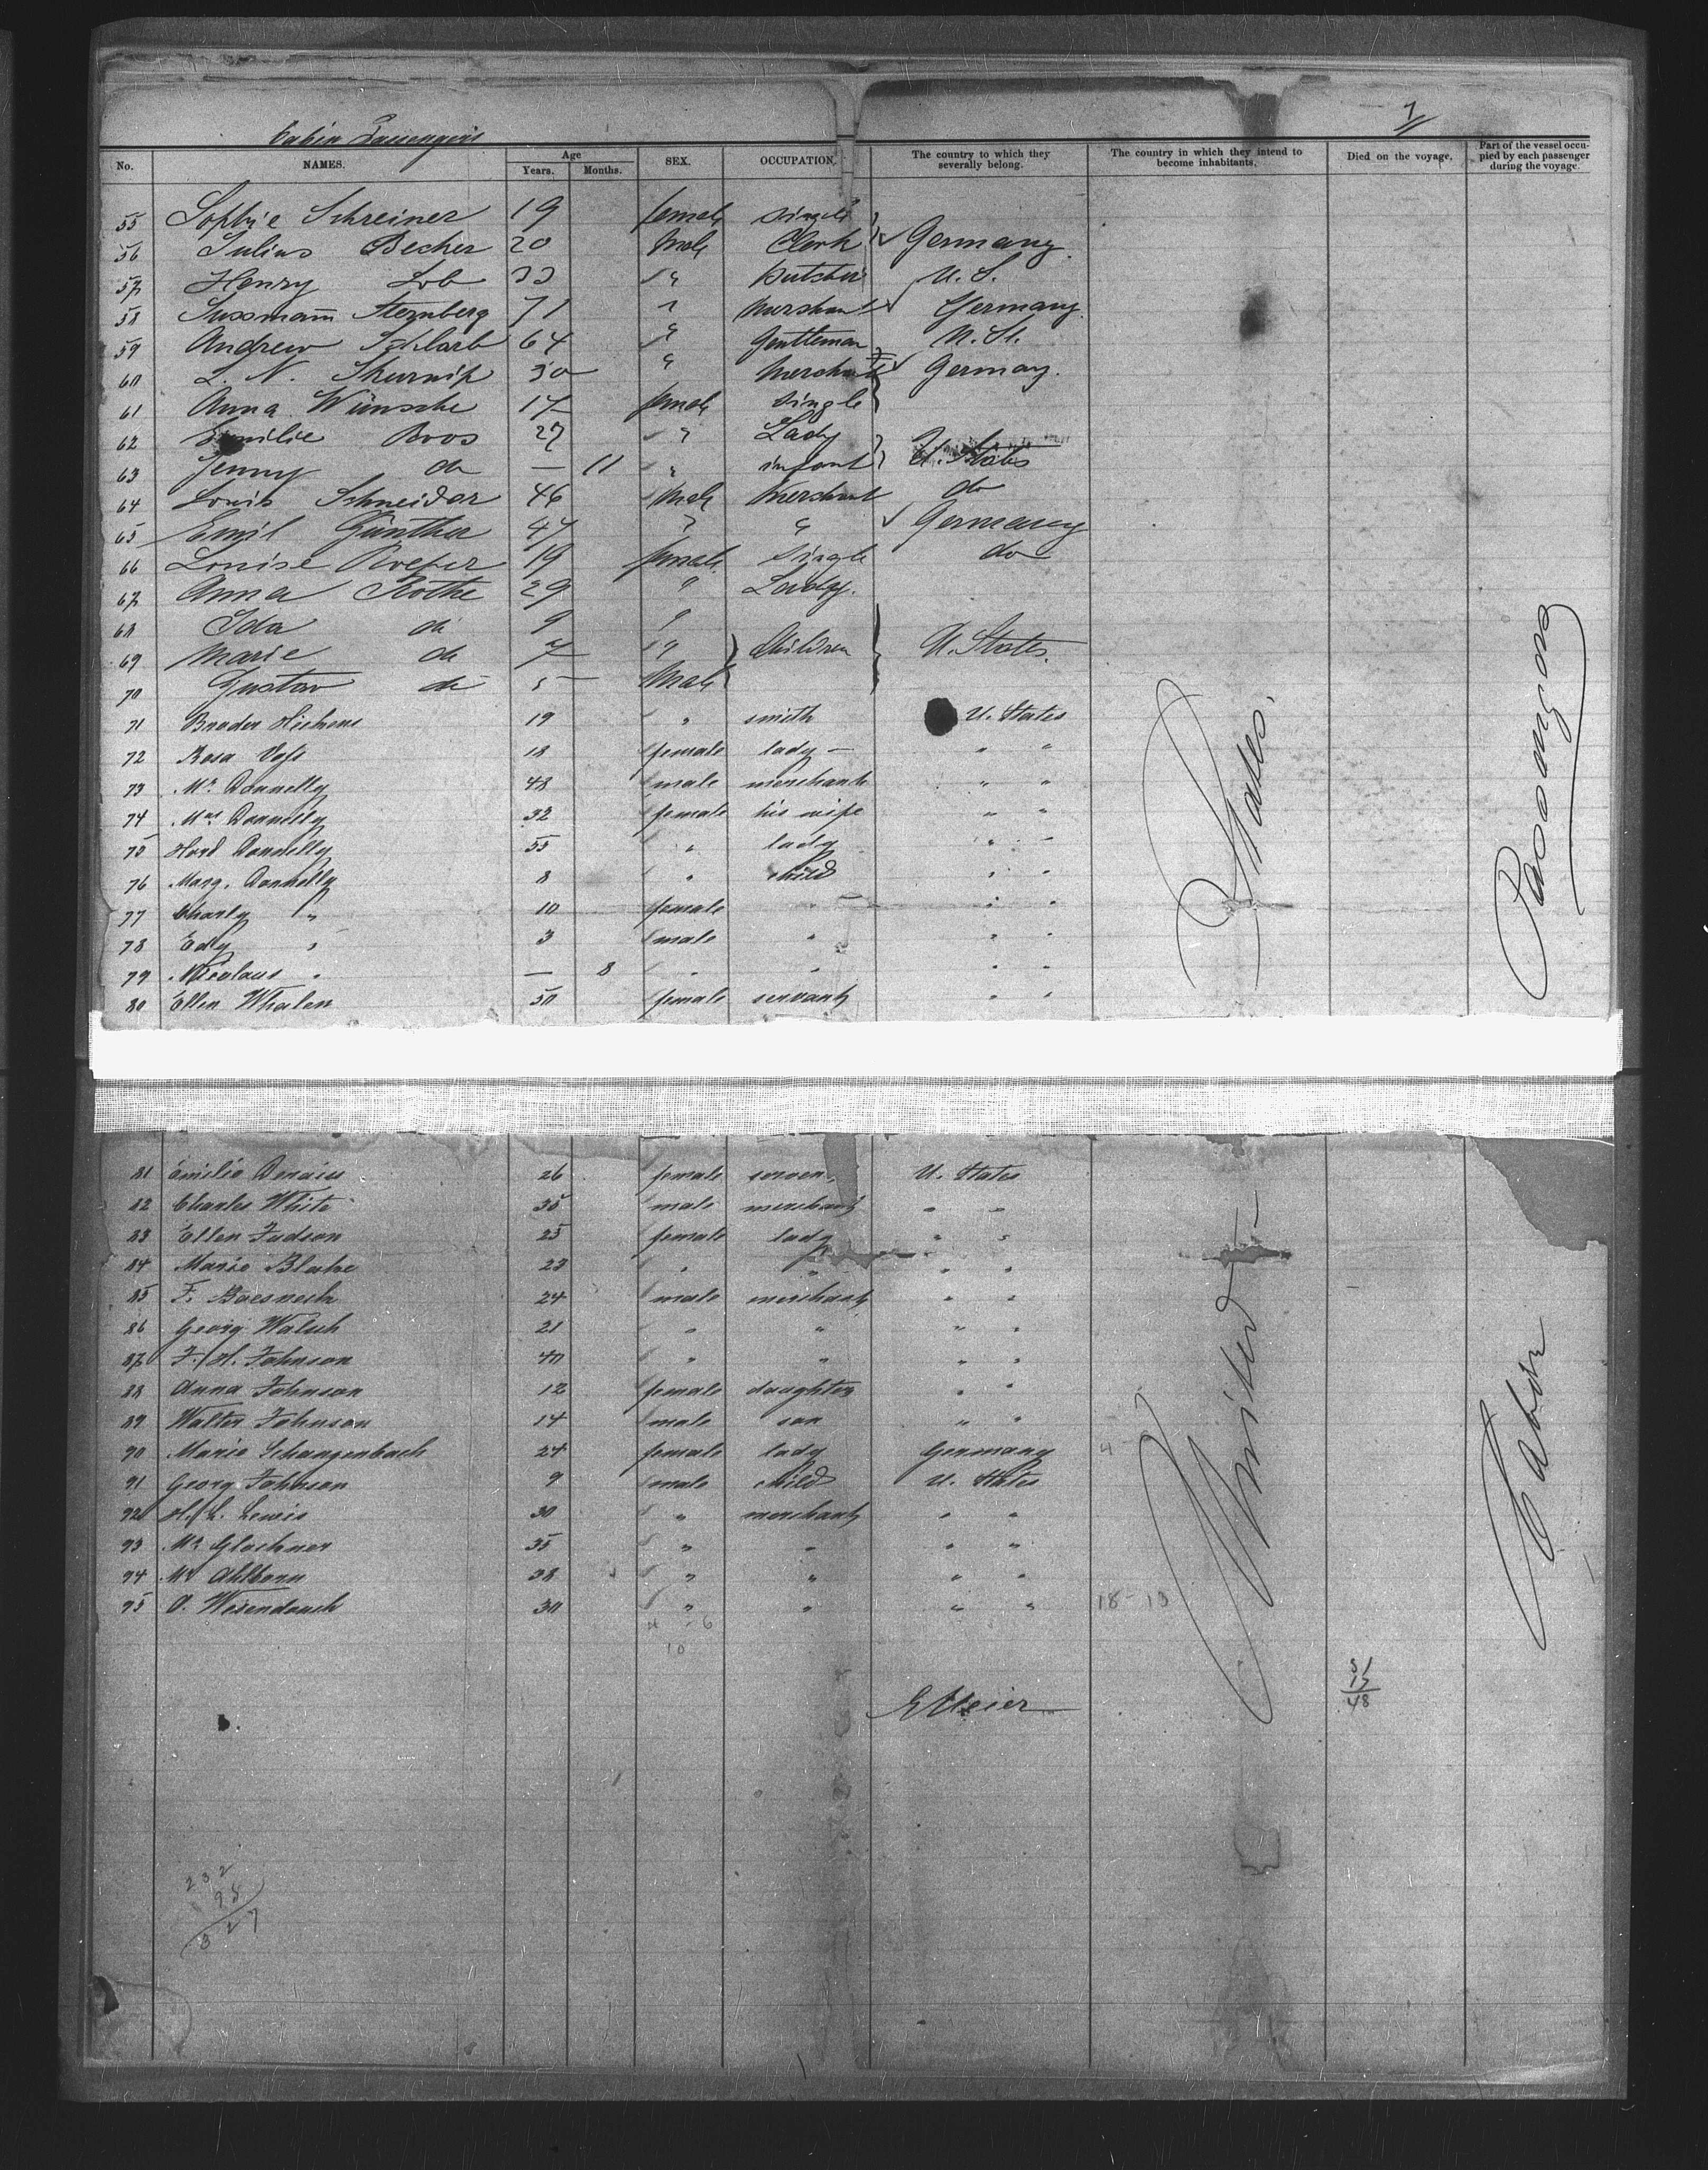 7
Cabin Passengers
No. NAMES. Age Years. Months. SEX. OCCUPATION. The country to which they severally belong. The country in which they intend to become inhabitants. Died on the voyage. Part of the vessel occupied by each passenger during the voyage.
55 Sophie Schreiner 19 female single
56 Julius Becker 20 Male Clerk Germany
57 Henry Lob 33 " Butcher U. S.
58 Sussmann Sternberg 71 " Merchant Germany
59 Andrew Schlarb 64 " Gentleman U. St.
60 L. N. 30 " Merchant Germany.
61 Anna Wünsche 17 female single
62 Emilie Boos 27 " Lady
63 Jenny do — 11 " infant U. States
64 Louis Schneider 46 Male Merchant do
65 Emil Günther 47 " " Germany
66 Louise Roeper 19 female single do
67 Anna Rothe 29 " Lady.
68 Ida do 9 "
69 Marie do 7 " Children U. States.
70 Gustav do 5 Male
71 Broder 19 " smith U. States
72 Rosa 18 female lady — " "
73 Mr. Donnelly 48 male merchant " "
74 Mrs Donnelly 32 female his wife " "
75 Donnelly 55 " lady " "
76 Marg. Donnelly 8 " child " "
77 Charly " 10 female " " "
78 Edy " 3 male " " "
79 Nicolaus " — 8 " " " "
80 Ellen Whalen 50 female servant " "
81 Emilie 26 female U. States
82 Charles White 35 male merchant " "
83 Ellen Judson 25 female lady " "
84 Marie Blake 23 " " " "
85 F. 24 male merchant " "
86 Georg Walsh 21 " " " "
87 F. H. Johnson 40 " " " "
88 Anna Johnson 12 female daughter " "
89 Walter Johnson 14 male son " "
90 Marie Schangenbach 24 female lady Germany 4
91 Georg Johnson 9 male child U. States
92 H. L. Lewis 30 " merchant " "
93 Mr Glochner 35 " " " "
94 Mr Ahlborn 38 " " " "
95 O. Wesendonck 30 " " " " 18-13
United States.
Cabin Passengers
4 6
10
E Meier
48
232
95
327